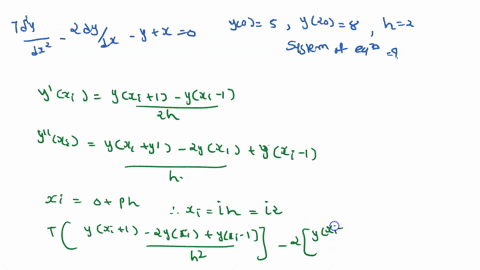 7d²y/dx² - 2dy/dx - y + x = 0 y(0) = 5 , y(20) = 8 , h = 2
System of eqⁿ
y'(xi) = y(xi+1) - y(xi-1) / 2h
y''(xi) = y(xi+y') - 2y(xi) + y(xi-1) / h
xi = 0 + ph ∴ xi = ih = i2
7( y(xi+1) - 2y(xi) + y(xi-1) / h² ] - 2[ y(xi